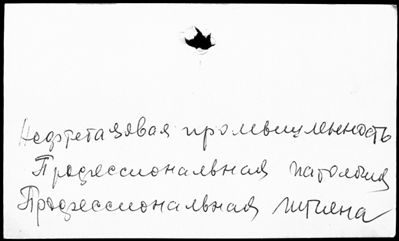 Нефтегазовая промышленность
Профессиональная патология
Профессиональная гигиена